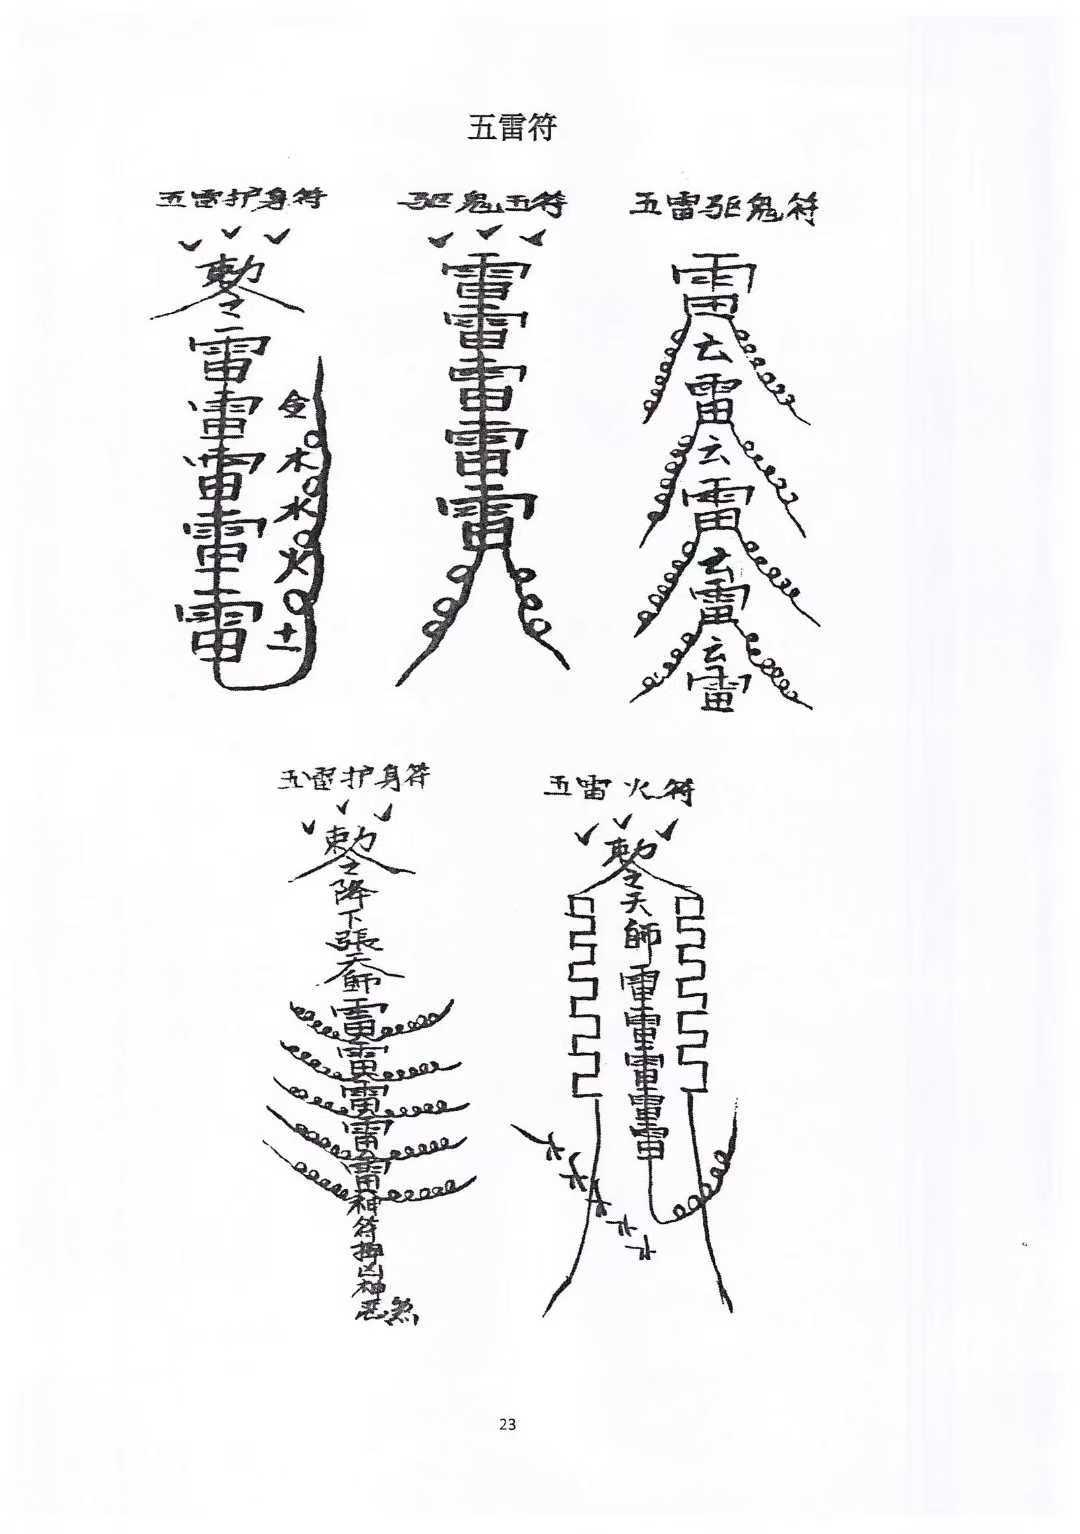 五雷符
五雷护身符
驱鬼五符
五雷驱鬼符
敕令
雷
雷
雷
雷
雷
金
木
水
火
土
雷
雷
雷
雷
雷
雷
云
雷
云
雷
云
雷
云
雷
五雷护身符
五雷火符
敕令
降
下
張
天
師
雷
雷
雷
雷
雷
神
符
押
凶
神
恶煞
敕令
天
師
雷
雷
雷
雷
雷
23